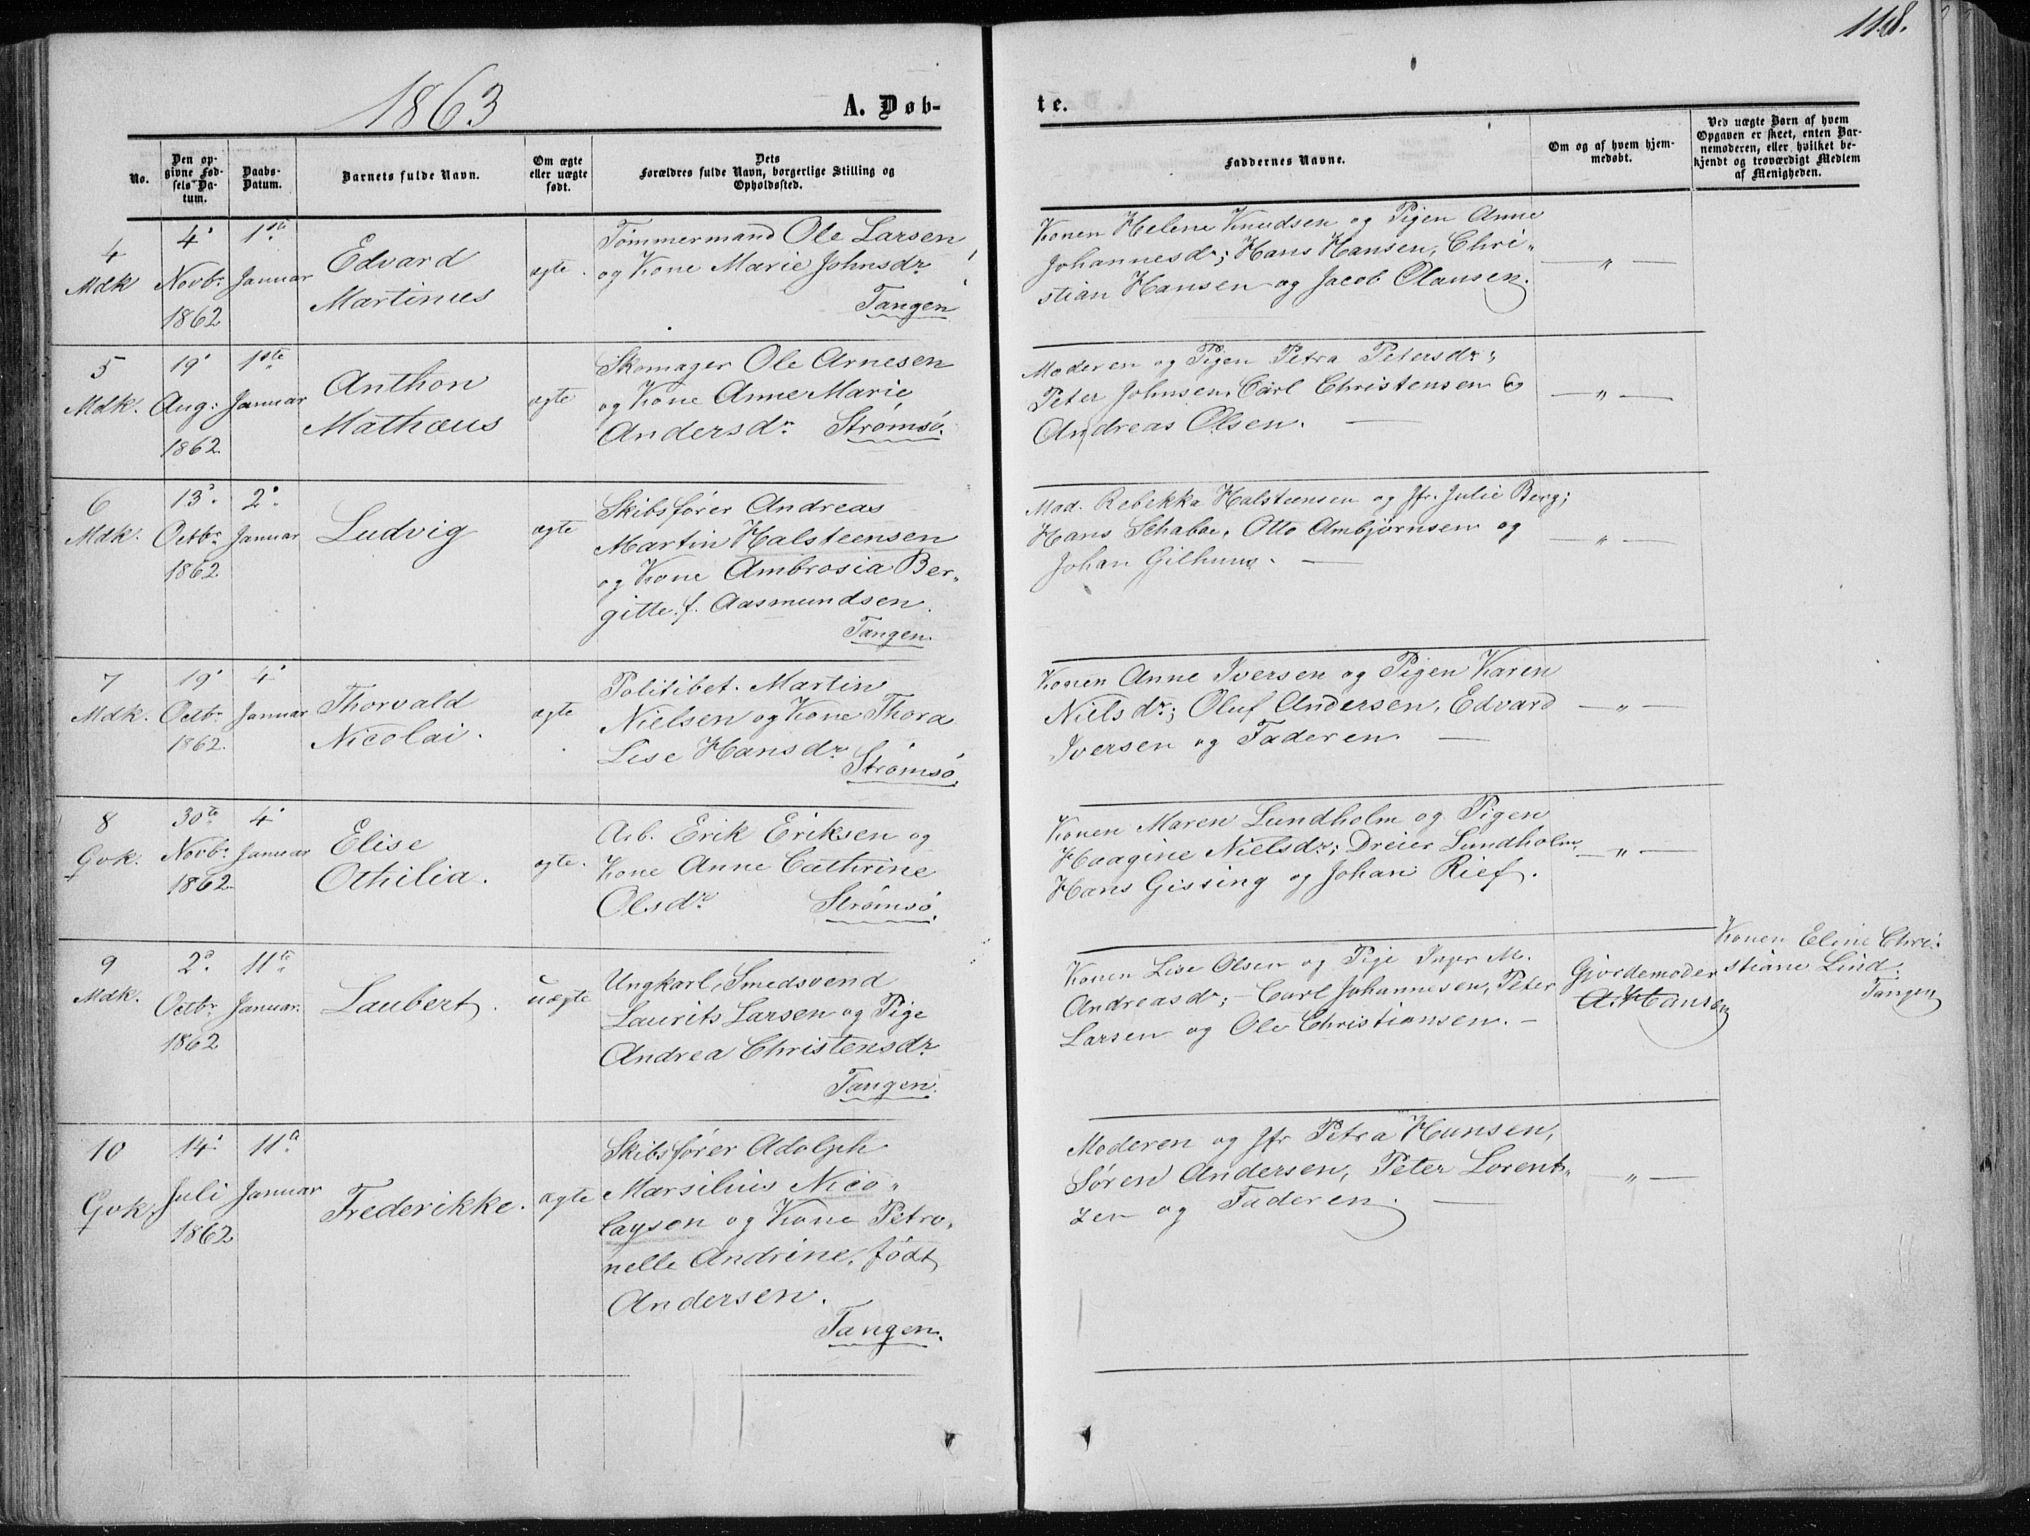 118.
1863
A. Døb-
te.
No.
Den opgivne Fødsels Datum.
Daabs-Datum.
Barnets fulde Navn.
Om ægte eller uægte født.
Dets Forældres fulde Navn, borgerlige Stilling og Opholdssted.
Faddernes Navne.
Om og af hvem hjemmedøbt.
Ved uægte Børn af hvem Opgaven er skeet, enten Barnemoderen, eller hvilket bekjendt og troværdigt Medlem af Menigheden.
4
Mdk
4.
Novbr
1862
1ste
Januar
Edvard
Martinus
ægte.
Tømmermand Ole Larsen
og Kone Marie Johnsdr
Tangen
Konen Helene Knudsen og Pigen Anne
Johannesdr; Hans Hansen, Chri-
stian Hansen og Jacob Olausen.
— " —
5
Mdk.
19'
Aug:
1862
1ste
Januar
Anthon
Mathæus
ægte
Skomager Ole Arnesen
og Kone Anne Marie
Andersdr. Strømsø.
Moderen og Pigen Petra Petersdr,
Peter Johnsen, Carl Christensen og
Andreas Olsen. —
— " —
6
Mdk.
13'.
Octbr
1862
2'
Januar
Ludvig
ægte
Skibsfører Andreas
Martin Halsteensen
og Kone Ambrosia Ber-
gitte f. Aasmundsen.
Tangen.
Mad. Rebekka Halsteensen og Jfr. Julie Berg;
Hans Schabo, Otto Ambjørnsen og
Johan Gilhuus. —
— " —
7
Mdk.
19'
Octbr
1862.
4'
Januar
Thorvald
Nicolai.
ægte
Politibet. Martin
Nielsen og Kone Thora
Lise Hansdr
Strømsø.
Konen Anne Iversen og Pigen Karen
Nielsdr; Oluf Andersen, Edvard
Iversen og Faderen. —
— " —
8
Qvk.
30te
Novbr
1862
4'
Januar
Elise
Othilia.
ægte.
Arb. Erik Eriksen og
Kone Anne Cathrine
Olsdr Strømsø.
Konen Maren Lundholm og Pigen
Haagine Nielsdr; Dreier Lundholm,
Hans Gissing og Johan Rief.
— " —
9
Mdk.
2'.
Octbr
1862
11te
Januar.
Laubert.
uægte
Ungkarl, Smedsvend
Laurits Larsen og Pige
Andrea Christensdr
Tangen.
Konen Lise Olsen og Pige M.
Andreasdr; – Carl Johannesen, Peter
Larsen og Ole Christiansen. –
Gjordemoder
A. Hansen
Konen Eline Chri-
stiane Lind.
Tangen
10
Qvk.
14'
Juli
1862
11te
Januar
Frederikke.
ægte
Skibsfører Adolph
Marsilius Nico-
laysen og Kone Petro-
nelle Andrine, født
Andersen.
Tangen.
Moderen og Jfr Petra Hansen,
Søren Andersen, Peter Lorent-
zen og Faderen. —
— " —